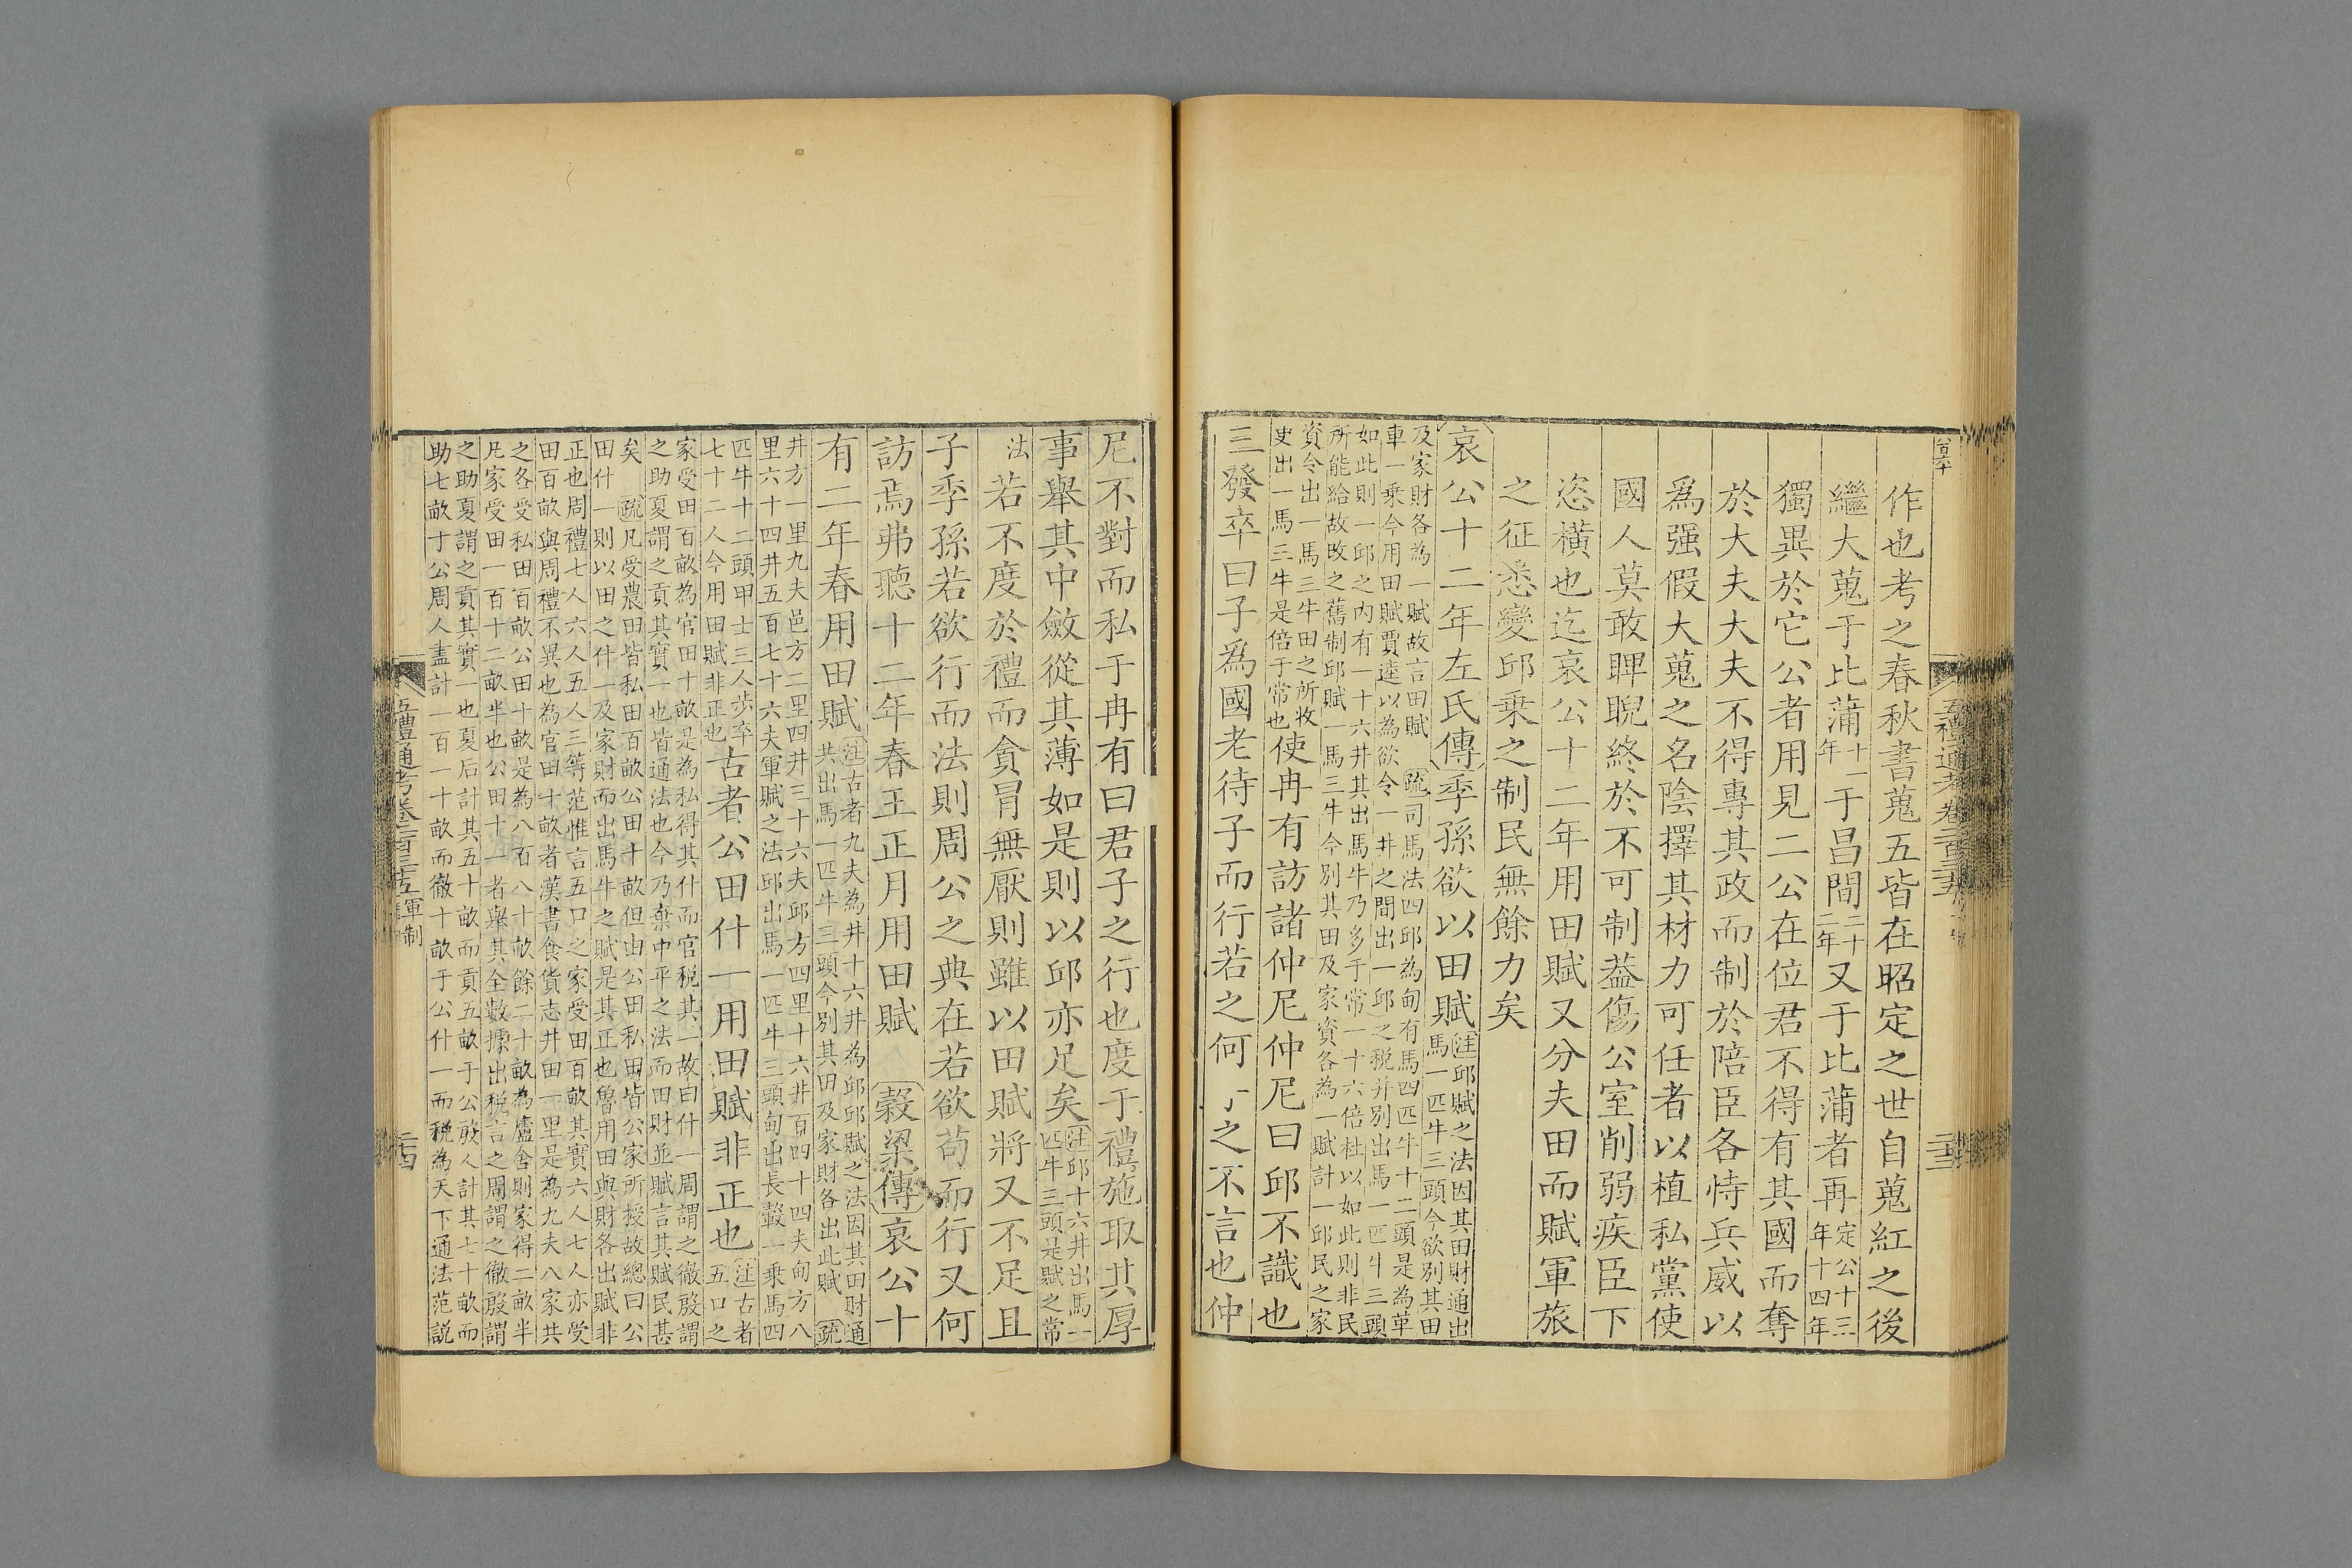 作也考之春秋書蒐五皆在昭定之世自蒐紅之後
繼大蒐于比蒲十一年于昌間二十二年又于比蒲者再定公十三年十四年
獨異於它公者用見二公在位君不得有其國而奪
於大夫大夫不得專其政而制於陪臣各恃兵威以
爲强假大蒐之名陰擇其材力可任者以植私黨使
國人莫敢睥睨終於不可制葢傷公室削弱疾臣下
恣橫也迄哀公十二年用田賦又分夫田而賦軍旅
之征悉變邱乗之制民無餘力矣
哀公十二年左氏傳季孫欲以田賦注邱賦之法因其田財通出馬一匹牛三頭今欲別其田
及家財各為一賦故言田賦 疏司馬法四邱為甸有馬四匹牛十二頭是為革
車一乗今用田賦賈逵以為欲令一井之間出一邱之税井別出馬一匹牛三頭
如此則一邱之內有一十六井其出馬牛乃多于常一十六倍杜以如此則非民
所能給故改之舊制邱賦一馬三牛今別其田及家資各為一賦計一邱民之家
資令出一馬三牛田之所收
史出一馬三牛是倍于常也使冉有訪諸仲尼仲尼曰邱不識也
三發卒曰子爲國老待子而行若之何子之不言也仲
尼不對而私于冉有曰君子之行也度于禮施取其厚
事舉其中斂從其薄如是則以邱亦足矣注邱十六井出馬一匹牛三頭是賦之常
法若不度於禮而貪冐無厭則雖以田賦將又不足且
子季孫若欲行而法則周公之典在若欲苟而行又何
訪焉弗聽十二年春王正月用田賦 榖梁傳哀公十
有二年春用田賦注古者九夫為井十六井為邱邱賦之法因其田財通共出馬一匹牛三頭今別其田及家財各出此賦 疏
井方一里九夫邑方二里四井三十六夫邱方四里十六井百四十四夫甸方八
里六十四井五百七十六夫軍賦之法邱出馬一匹牛三頭甸出長轂一乗馬四
匹牛十二頭甲士三人步卒
七十二人今用田賦非正也古者公田什一用田賦非正也注古者五口之
家受田百畝為官田十畝是為私得其什而官税其一故曰什一周謂之徹殷謂
之助夏謂之貢其實一也皆通法也今乃棄中平之法而田財並賦言其賦民甚
矣 疏凡受農田皆私田百畝公田十畝但由公田私田皆公家所授故總曰公
田什一則以田之什一及家財而出馬牛之賦是其正也魯用田與財各出賦非
正也周禮七人六人五人三等范惟言五口之家受田百畝其實六人七人亦受
田百畝與周禮不異也為官田十畝者漢書食貨志井田一里是為九夫八家共
之各受私田百畝公田十畝是為八百八十畝餘二十畝為廬舍則家得二畝半
凡家受田一百十二畝半也公田十一者舉其全數據出税言之周謂之徹殷謂
之助夏謂之貢其實一也夏后計其五十畝而貢五畝于公殷人計其七十畝而
助七畝于公周人盡計一百一十畝而徹十畝于公什一而税為天下通法范説
五禮通考卷二百三十五軍制
二十四